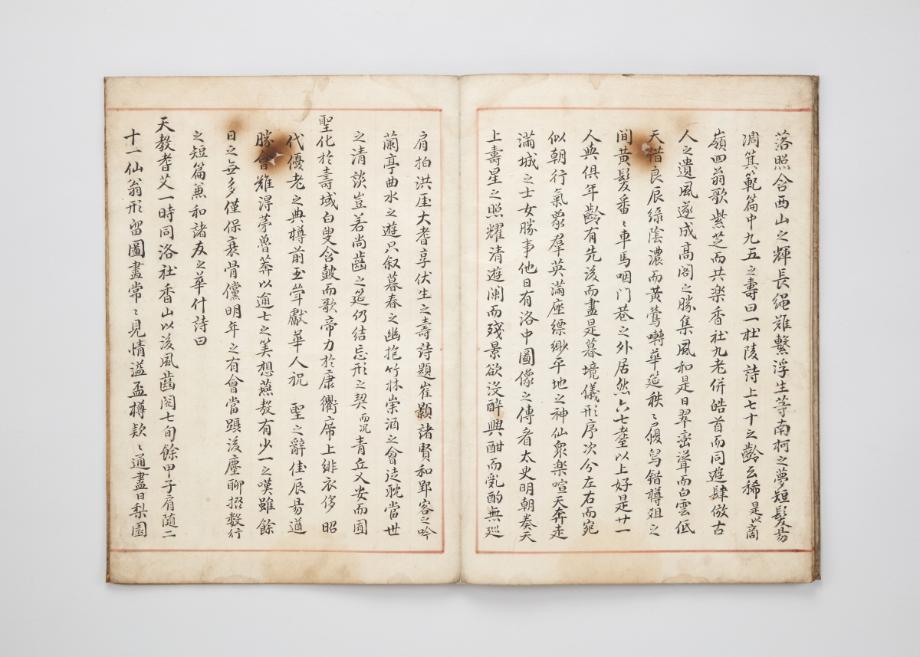 落照含西山之輝長繩難繫浮生等南柯之夢短髮易
凋箕範篇中九五之壽曰一杜陵詩上七十之齡云稀是以商
嶺四翁歌紫芝而共樂香社九老併皓首而同遊肆倣古
人之遺風遂成高閣之勝集風和是日翠巒聳而白雲低
天惜良辰綠陰濃而黃鶯囀華筵秩〻優笃錯罇俎之
間黃髮番〻車馬咽门巷之外居然六七耋以上好是廿一
人與俱年齡有先後而盡是暮境儀形序次分左右而宛
似朝行氣象群英滿座縹緲平地之神仙衆樂喧天奔走
滿城之士女勝事他日有洛中圖像之傳看太史明朝奏天
上壽星之照耀清遊闌而殘景欲沒醉興酣而亂酌無巡
肩拍洪厓大耆享伏生之壽詩題崔顥諸賢和郢客之吟
蘭亭曲水之遊只叙暮春之幽抱竹林崇酒之會徒耽當世
之清談豈若尚齒之筵仍結忘形之契而况青丘乂安而囿
聖化於壽域白叟含皷而歌帝力於康衢席上緋衣侈昭
代優老之典樽前玉斝獻華人祝聖之辭佳辰易遒
勝會難得夢魯莽以逾七之美想燕毅有少一之嘆雖餘
日之無多僅保衰骨儻明年之有會當躡後塵聊掇數行
之短篇兼和諸友之華什詩曰
天敎耆艾一時同洛社香山以後風齒閣七旬餘甲子肩隨二
十一仙翁形留圖畫常〻見情溢盃樽欵〻通盡日梨園